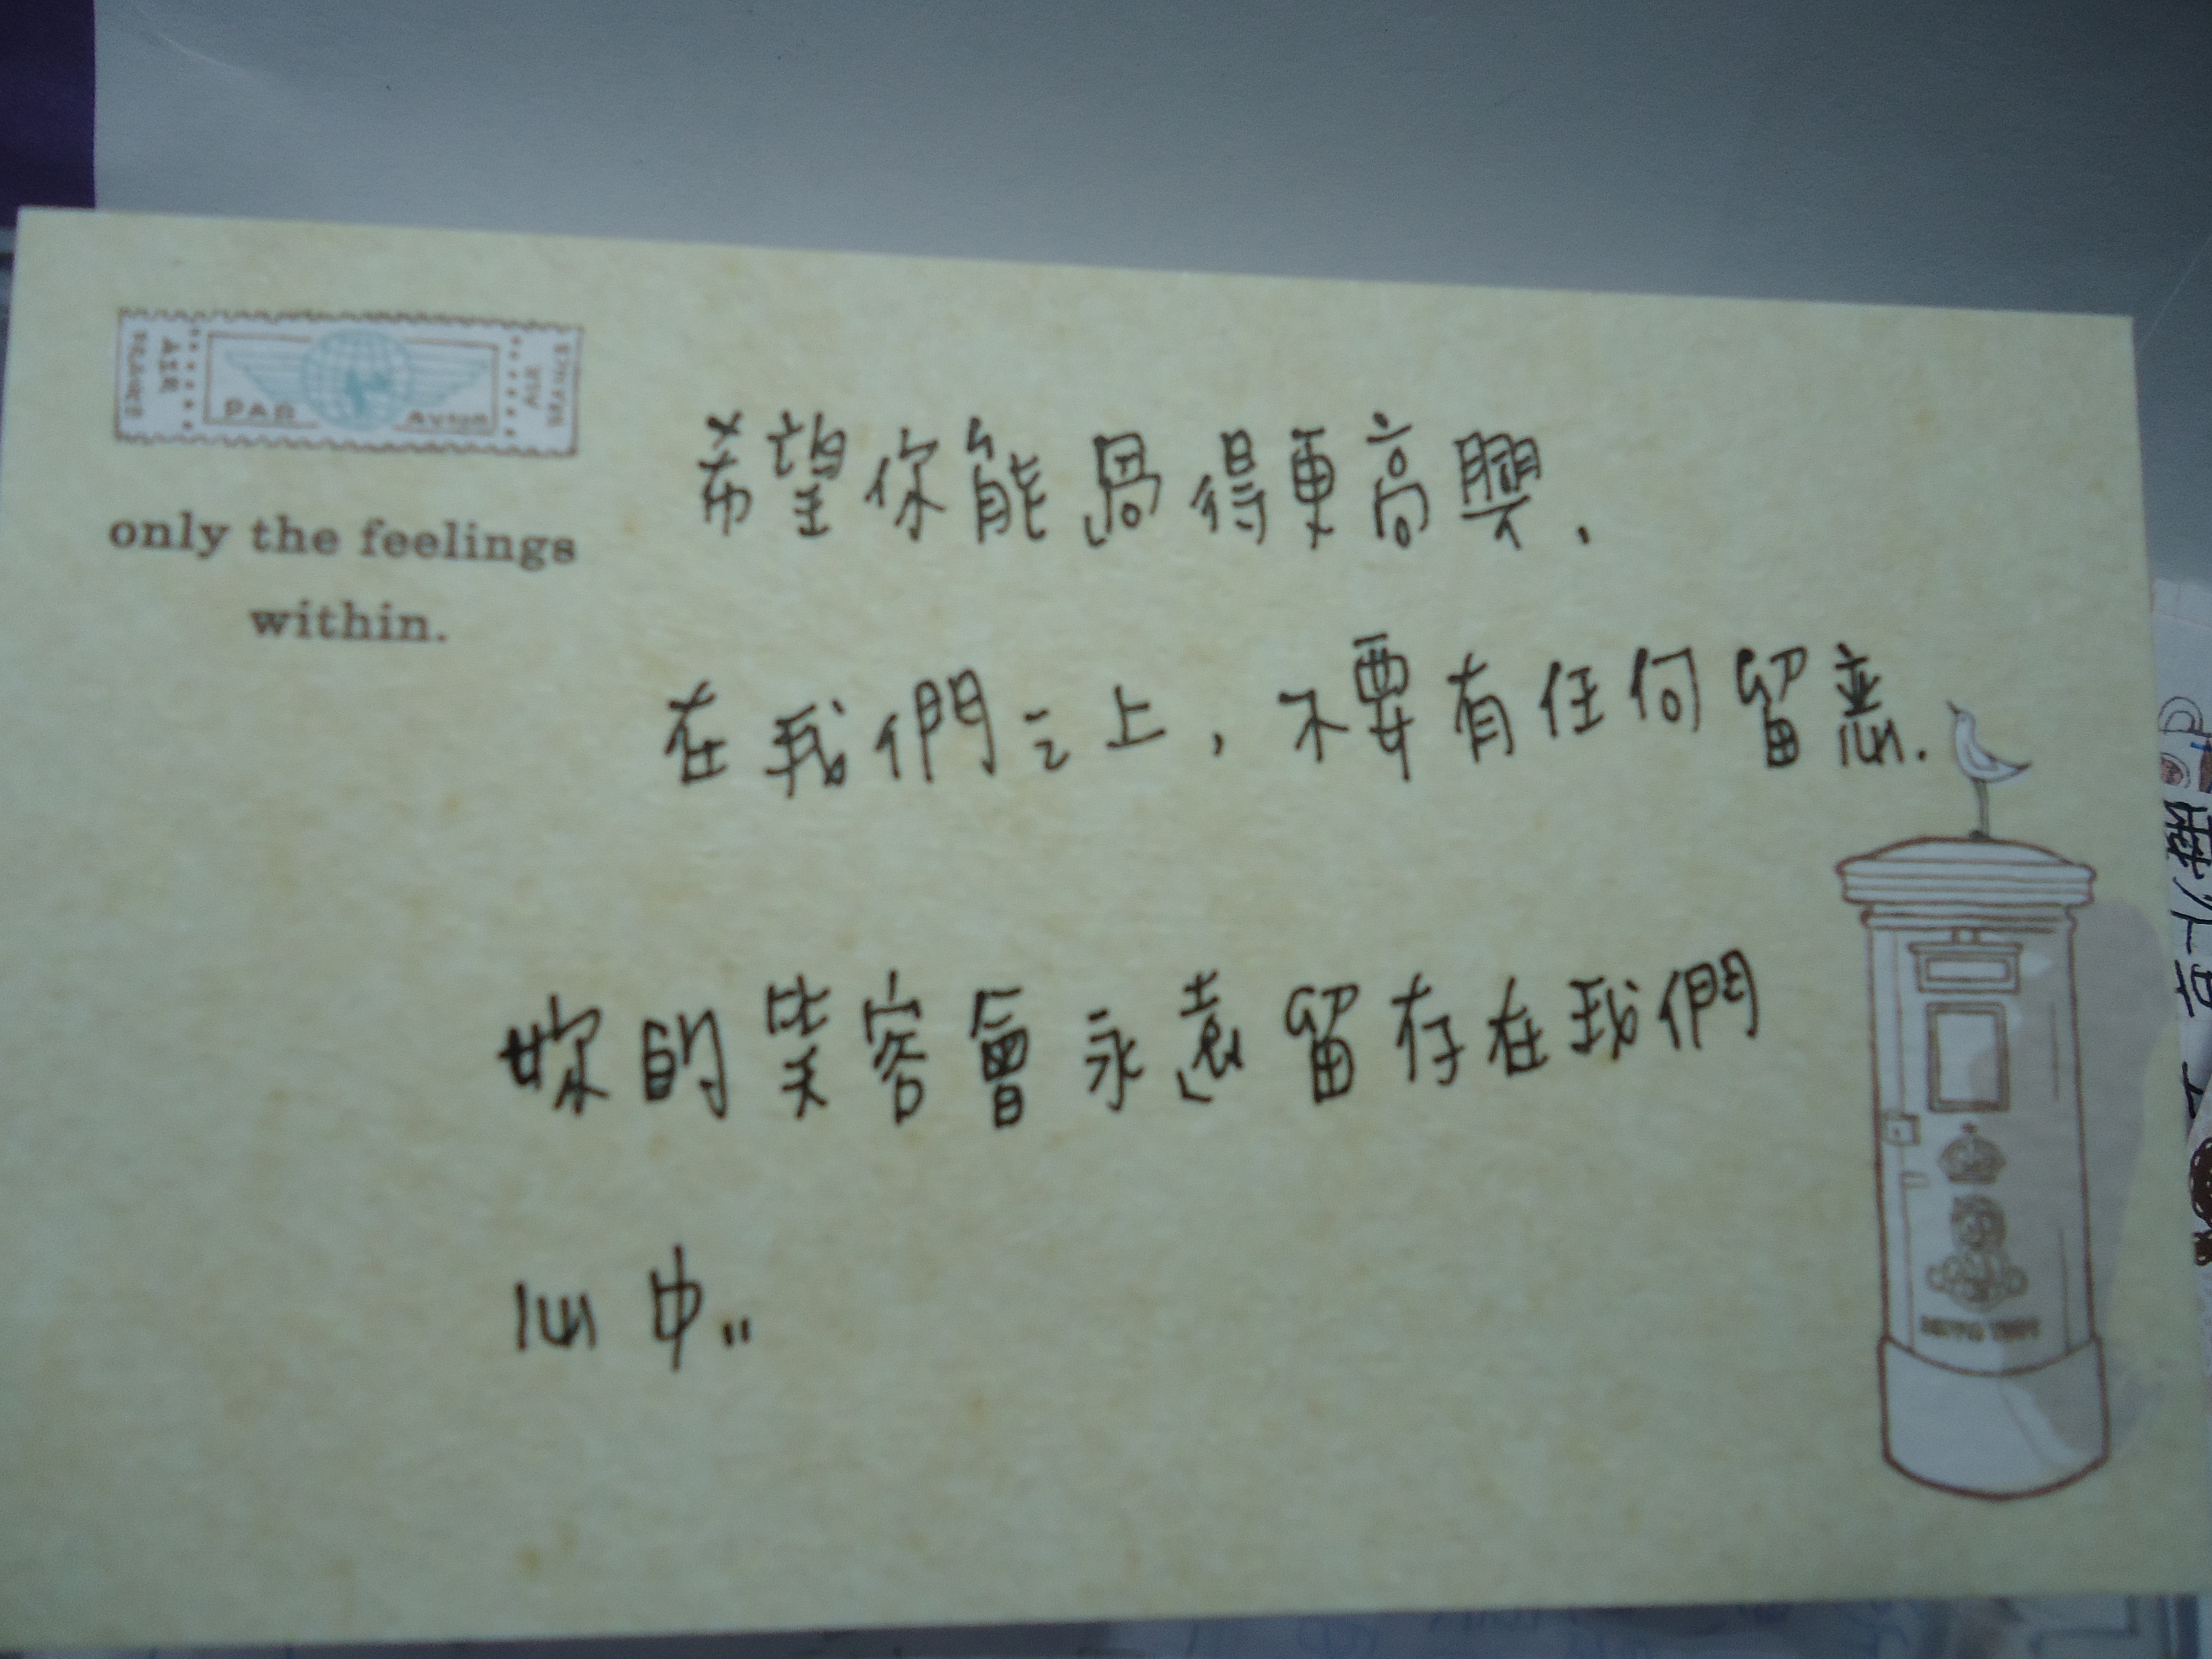 PAR AVION
only the feelings
within.
希望你能過得更高興.
在我們之上，不要有任何留恋.
妳的笑容會永遠留存在我們
心中..